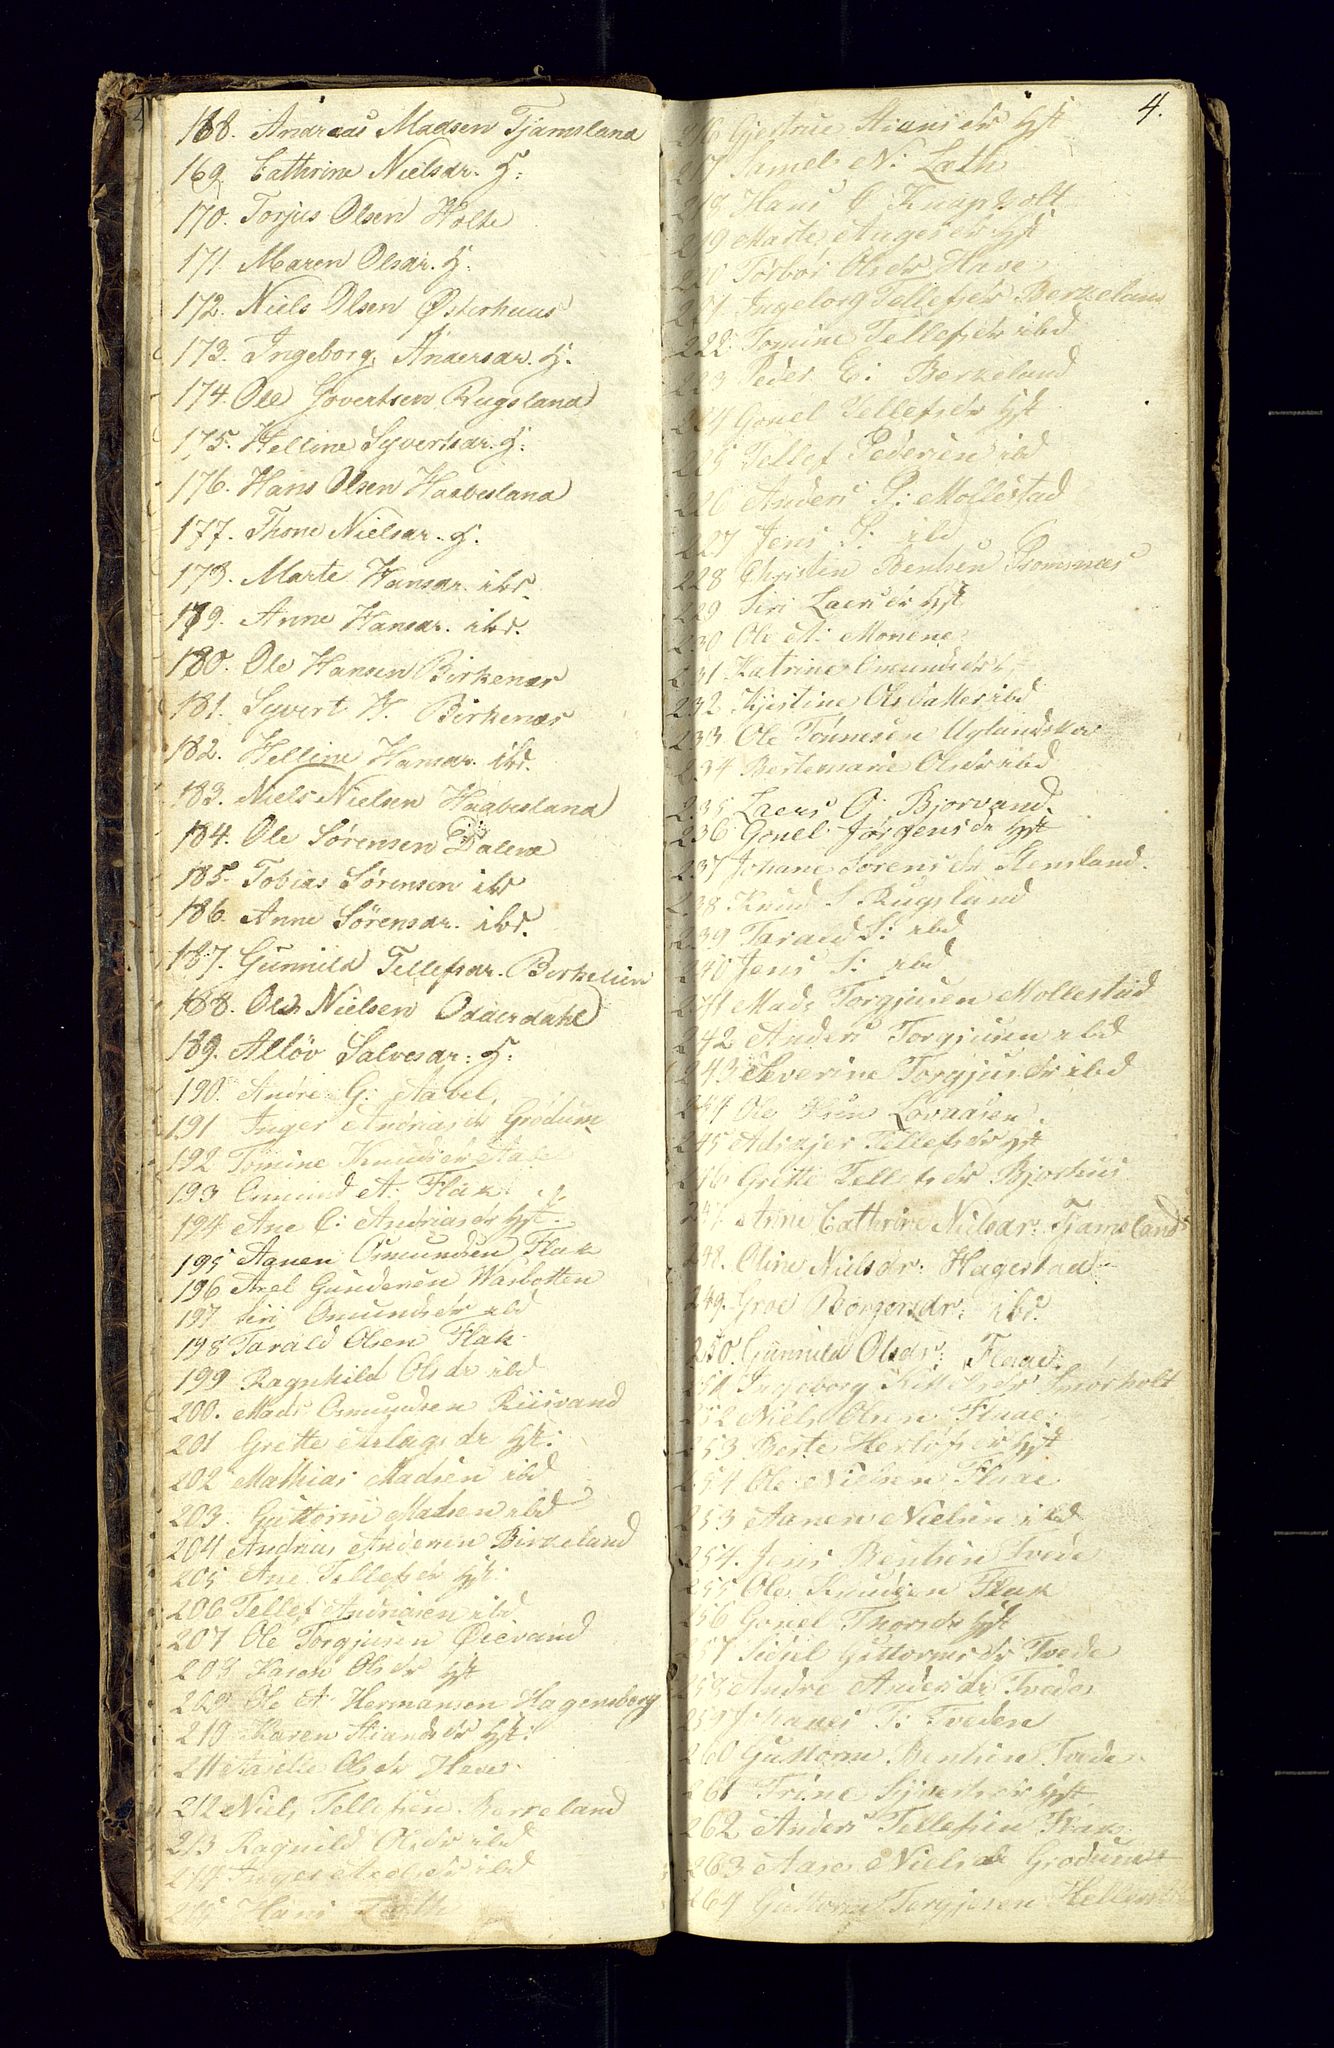 168. Andreas Madsen Tjamsland
169 Cathrine Nielsdr. H:
170. Torjus Olsen Holte
171. Maren Olsdr. H:
172. Niels Olsen Østerhuus
173. Ingeborg Andersdr. H.
174. Ole Govertsen Rugsland
175. Helline Syvertsdr. H:
176. Hans Olsen Haabesland
177. Thone Nielsdr. H.
178. Marte Hansdr. ibd.
179. Anne Hansdr. ibd.
180. Ole Hansen Birkenæs
181. Syvert H. Birkenæs
182. Helline Hansdr. ibd.
183. Niels Nielsen Haabesland
184. Ole Sørensen Dalene
185. Tobias Sørensen ibd
186. Anne Sørensdr. ibd.
187. Gunnild Tellefsdr. Berkelien
188. Ole Nielsen Oddersdahl
189. Alløv Salvesdr: H:
190. Andre G: Aabel
191 Inger Andriasdr Grødum
192 Tomine Knudsdr Aabel
193 Omund A: Flak
194 Ane C: Andriasdr Hst:
195 Aanen Omundsen Flak
196 Axel Gundersen Wasbotten
197 Siri Omundsdr ibd
198 Tarald Olsen Flak
199 Ragnhild Olsdr ibd
200. Mads Omundsen Riisvand
201 Grette Aslagsdr Hst:
202 Mathias Madsen ibd
203. Guttorm Madsen ibd
204 Andrias Andersen Birkeland
205 Ane Tellefsdr Hst.
206 Tellef Andriasen ibd
207 Ole Torgjusen Øievand
208 Karen Olsdr Hst
209 Ole A Hermansen Hagensborg
210 Karen Stiansdr Hst:
211 Aasille Olsdr Have
212 Niels Tellefsen Berkeland
213 Ragnild Olsdr ibd
214 Inger Nielsdr ibd
215 Hans Lath
4.
216 Gjertrue Stiansdr Hst
217 Samel N: Lath
218 Hans O Knapholt
219 Marte Aagesdr Hst
220 Torbor Olsdr Have
221 Ingeborg Tellefsdr Berkeland
222. Tomine Tellefsdr ibd
223 Peder E: Berkeland
224 Gonel Tellefsdr Hst
225 Tellef Pedersen ibd
226 Anders P: Mollestad
227 Jens P: ibd
228 Christen Bentsen Tromsnæs
229 Siri Laersdr Hst
230 Ole A: Monene
231 Katrine Omundsdr
232 Kjestine Olsdatter ibd
233 Ole Tønnesen Uglandskor
234 Bertemarie Olsdr ibd
235 Laers O: Bjorvand.
236 Gonel Jørgensdr Hst
237 Johane Sørensdr Stensland.
238 Knud S Rugsland
239 Tarald S: ibd
240 Jens S: ibd
241 Mads Torgjusen Mollestad
242 Anders Torgjusen ibd
243 Severine Torgjusdr ibd
244 Ole Lovaasen
245 Tellefsdr Hst
246 Gritte Tellefsdr Bjorhus
247. Anne Cathrine Nielsdr: Tjamsland
248. Oline Nielsdr: Hagestad
249. Groe Børgersdr: ibd.
250. Gunnild Olsdr: Flaae:
251 Ingeborg Kittelsdr Smørholt
252 Niels Olsen Flaae:
253 Berte Herlofsdr Hst
254 Ole Nielsen Flaae
253 Aanen Nielsen ibd
254. Jens Bentsen Tvede
255 Ole Knudsen Flak
256 Gonel Thorsdr Hst
257 Sidsel Guttormsdr Tvede
258 Andre Andersdr Tvede
259 T: Tveden
260 Guttorm Bentsen Tvede
261 Trine Syvertsdr Hst
262 Anders Tellefsen Flak
263 Aase Nielsdr Grodum
264 Guttorm Torgjusen